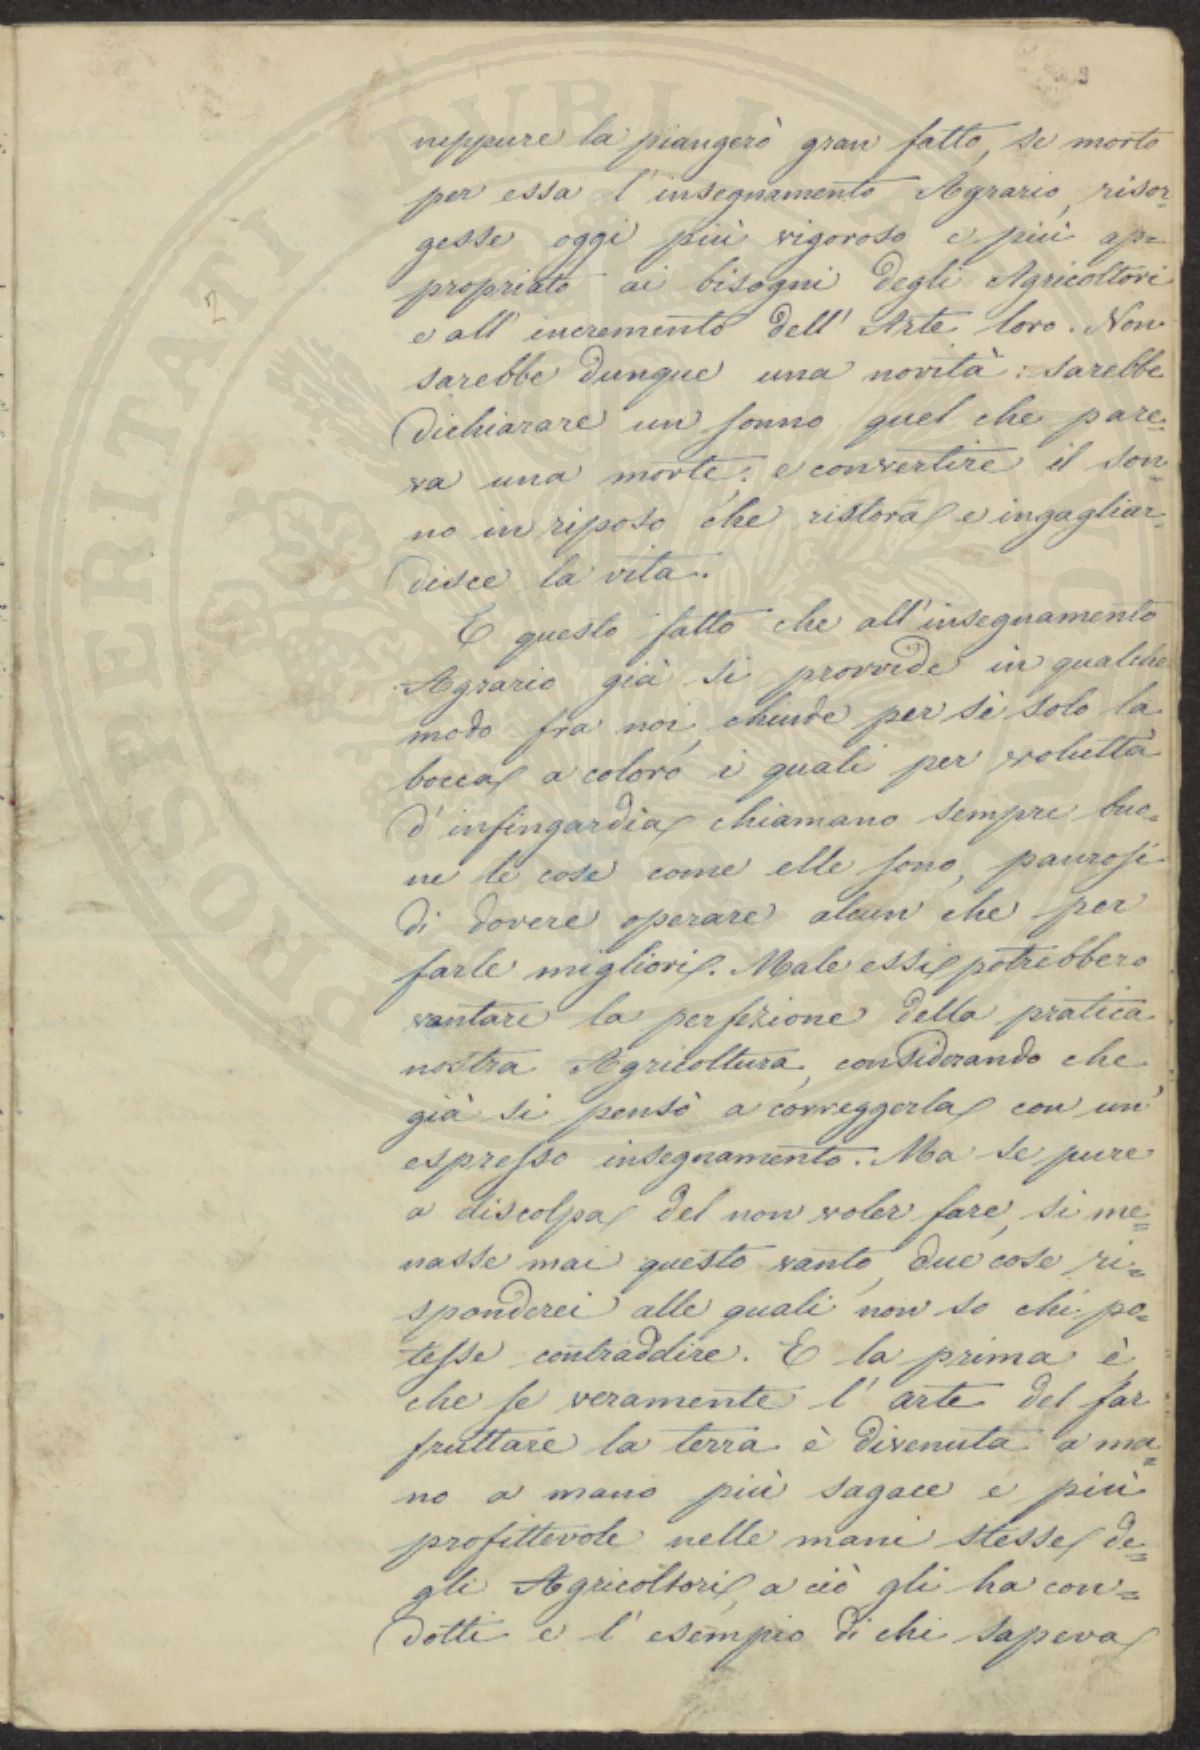 neppure la piangerò gran fatto, se morto
per essa l'insegnamento Agrario, risor=
gesse oggi più vigoroso e più ap=
propriato ai bisogni degli Agricoltori
e all'incremento dell'Arte loro. Non
sarebbe dunque una novità: sarebbe
dichiarare un sonno quel che pare=
va una morte: e convertire il son=
no in riposo che ristora e ingagliar=
disce la vita.
E questo fatto che all'insegnamento
Agrario già si provvide in qualche
modo fra noi, chiude per sè solo la
bocca a coloro i quali per voluttà
d'infingardia chiamano sempre buo=
ne le cose come elle sono, paurosi
di dovere operare alcun che per
farle migliori. Male essi potrebbero
vantare la perfezione della pratica
nostra Agricoltura, considerando che
già si pensò a correggerla con un
espresso insegnamento. Ma se pure
a discolpa del non voler fare, si me=
nasse mai questo vanto, due cose ri=
sponderei alle quali non so chi po=
tesse contraddire. E la prima è,
che se veramente l'arte del far
fruttare la terra è divenuta a ma=
no a mano più sagace e più
profittevole nelle mani stesse de=
gli Agricoltori, a ciò gli ha con=
dotti e l'esempio di chi sapeva
2
PROSPERITATI PUBLICAE